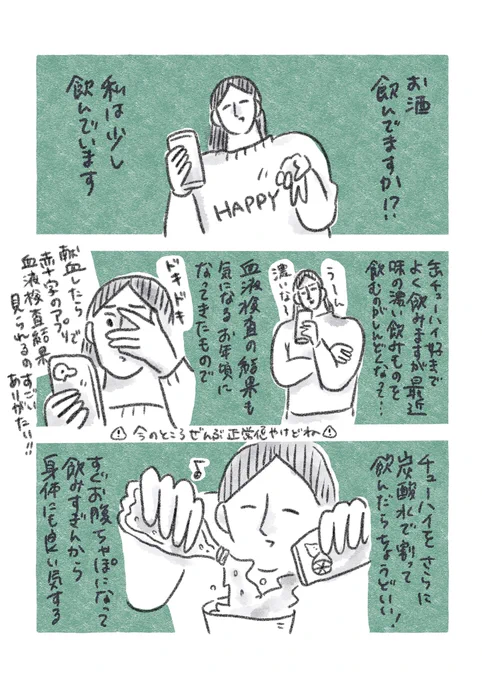 お酒
飲んでますか!?
HAPPY
私は少し
飲んでいます
缶チューハイ好きで
よく飲みますが最近
味の濃い飲みものを
飲むのがしんどくなって…
うーん
濃いな〜
血液検査の結果も
気になるお年頃に
なってきたもので
ドキドキ
献血したら
赤十字のアプリで
血液検査結果
見られるのすごい
ありがたい!!
今のところぜんぶ正常値やけどね
チューハイをさらに
炭酸水で割って
飲んだらちょうどいい!
♪
すぐお腹ちゃぽになって
飲みすぎんから
身体にも良い気する